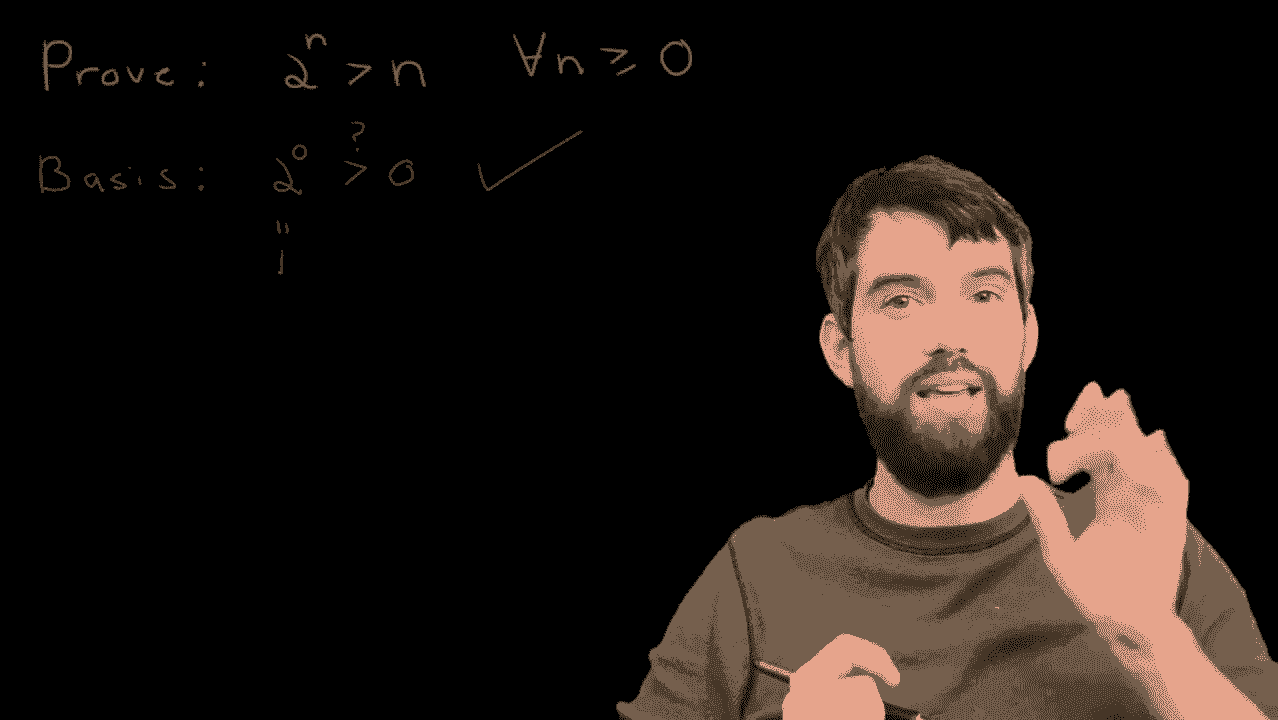 Prove: 2ⁿ > n ∀n ≥ 0
Basis: 2⁰ >? 0 ✓
"
1